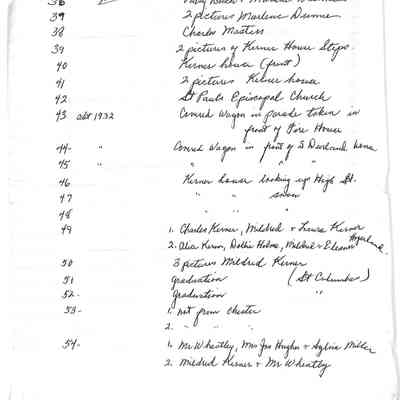 36
39 2 pictures Marlene Dunne
38 Charles Masters
39 2 pictures of Kerner House Steps.
40 Kerner house (front)
41 2 pictures Kerner house
42 St Pauls Episcopal Church
43 abt 1932 Conrad Wagon in parade taken in
front of Fire House
44- " Conrad Wagon in front of S Durland home
45 " " " "
46 Kerner house looking up High St.
47 " " snow
48 " " "
49 1. Charles Kerner, Mildred + Laura Kerner
2. Alice Kerner, Dollie Holmes, Mildred + Eleanor
50 3 pictures Mildred Kerner
51 graduation (St Columba)
52- graduation "
53- 1. not from Chester
2. " " "
54- 1. Mr Wheatley, Mrs Jos Hughes + Sylvia Miller
2. Mildred Kerner + Mr Wheatley